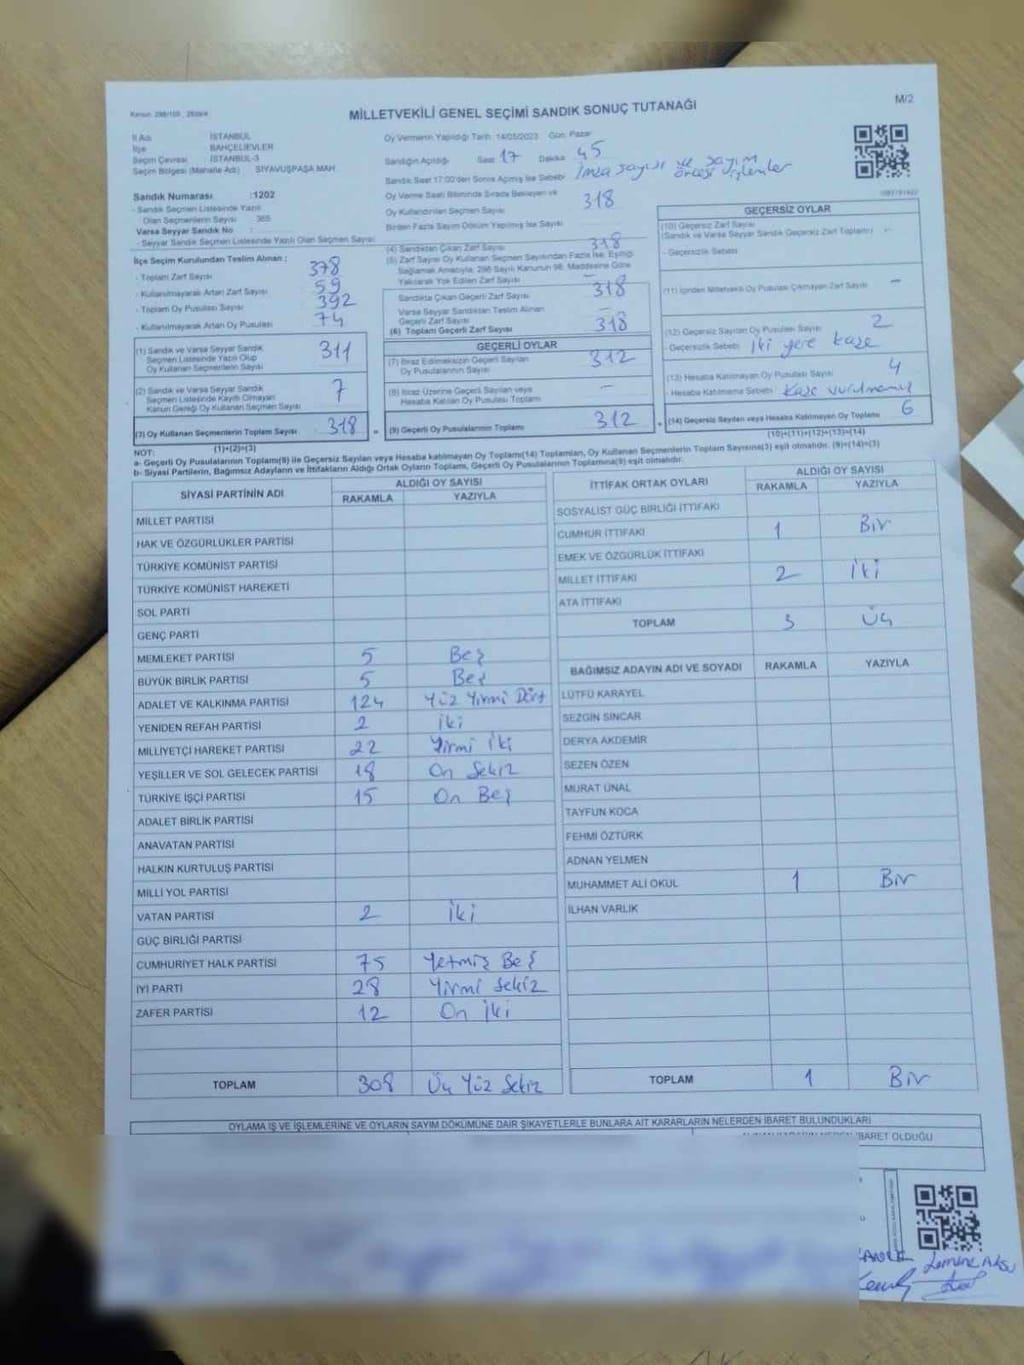 Kanun: 298/105 , 2839/4
MİLLETVEKİLİ GENEL SEÇİMİ SANDIK SONUÇ TUTANAĞI
M/2
İl Adı İSTANBUL
İlçe BAHÇELİEVLER
Seçim Çevresi İSTANBUL-3
Seçim Bölgesi (Mahalle Adı) SİYAVUŞPAŞA MAH.
Sandık Numarası :1202
- Sandık Seçmen Listesinde Yazılı
Olan Seçmenlerin Sayısı 365
Varsa Seyyar Sandık No :
- Seyyar Sandık Seçmen Listesinde Yazılı Olan Seçmen Sayısı:
İlçe Seçim Kurulundan Teslim Alınan ;
- Toplam Zarf Sayısı 378
- Kullanılmayarak Artan Zarf Sayısı 59
- Toplam Oy Pusulası Sayısı 392
- Kullanılmayarak Artan Oy Pusulası 74
(1) Sandık ve Varsa Seyyar Sandık
Seçmen Listesinde Yazılı Olup
Oy Kullanan Seçmenlerin Sayısı 311
(2) Sandık ve Varsa Seyyar Sandık
Seçmen Listesinde Kayıtlı Olmayan
Kanun Gereği Oy Kullanan Seçmen Sayısı 7
(3) Oy Kullanan Seçmenlerin Toplam Sayısı 318
(1)+(2)=(3)
Oy Vermenin Yapıldığı Tarih: 14/05/2023 Gün: Pazar
Sandığın Açıldığı Saat 17 Dakika 45
Sandık Saat 17:00'den Sonra Açılmış İse Sebebi İmza sayısı ve sayım öncesi işlemler
Oy Verme Saati Bitiminde Sırada Bekleyen ve
Oy Kullandırılan Seçmen Sayısı 318
Birden Fazla Sayım Döküm Yapılmış İse Sayısı
(4) Sandıktan Çıkan Zarf Sayısı 318
(5) Zarf Sayısı Oy Kullanan Seçmen Sayısından Fazla İse, Eşitliği
Sağlamak Amacıyla; 298 Sayılı Kanunun 98. Maddesine Göre
Yakılarak Yok Edilen Zarf Sayısı -
Sandıkta Çıkan Geçerli Zarf Sayısı 318
Varsa Seyyar Sandıktan Teslim Alınan
Geçerli Zarf Sayısı -
(6) Toplam Geçerli Zarf Sayısı 318
GEÇERLİ OYLAR
(7) İtiraz Edilmeksizin Geçerli Sayılan
Oy Pusulalarının Sayısı 312
(8) İtiraz Üzerine Geçerli Sayılan veya
Hesaba Katılan Oy Pusulası Toplamı -
(9) Geçerli Oy Pusulalarının Toplamı 312
GEÇERSİZ OYLAR
(10) Geçersiz Zarf Sayısı
(Sandık ve Varsa Seyyar Sandık Geçersiz Zarf Toplamı) -
- Geçersizlik Sebebi
(11) İçinden Milletvekili Oy Pusulası Çıkmayan Zarf Sayısı -
(12) Geçersiz Sayılan Oy Pusulası Sayısı 2
- Geçersizlik Sebebi İki yere kaşe
(13) Hesaba Katılmayan Oy Pusulası Sayısı 4
- Hesaba Katılmama Sebebi Kaşe vurulmamış
(14) Geçersiz Sayılan veya Hesaba Katılmayan Oy Toplamı 6
(10)+(11)+(12)+(13)=(14)
NOT:
a- Geçerli Oy Pusulalarının Toplamı(9) ile Geçersiz Sayılan veya Hesaba katılmayan Oy Toplamı(14) Toplamları, Oy Kullanan Seçmenlerin Toplam Sayısına(3) eşit olmalıdır. (9)+(14)=(3)
b- Siyasi Partilerin, Bağımsız Adayların ve İttifakların Aldığı Ortak Oyların Toplamı, Geçerli Oy Pusulalarının Toplamına(9) eşit olmalıdır.
SİYASİ PARTİNİN ADI ALDIĞI OY SAYISI
RAKAMLA YAZIYLA
MİLLET PARTİSİ
HAK VE ÖZGÜRLÜKLER PARTİSİ
TÜRKİYE KOMÜNİST PARTİSİ
TÜRKİYE KOMÜNİST HAREKETİ
SOL PARTİ
GENÇ PARTİ
MEMLEKET PARTİSİ 5 Beş
BÜYÜK BİRLİK PARTİSİ 5 Beş
ADALET VE KALKINMA PARTİSİ 124 Yüz Yirmi Dört
YENİDEN REFAH PARTİSİ 2 İki
MİLLİYETÇİ HAREKET PARTİSİ 22 Yirmi İki
YEŞİLLER VE SOL GELECEK PARTİSİ 18 On Sekiz
TÜRKİYE İŞÇİ PARTİSİ 15 On Beş
ADALET BİRLİK PARTİSİ
ANAVATAN PARTİSİ
HALKIN KURTULUŞ PARTİSİ
MİLLİ YOL PARTİSİ
VATAN PARTİSİ 2 İki
GÜÇ BİRLİĞİ PARTİSİ
CUMHURİYET HALK PARTİSİ 75 Yetmiş Beş
İYİ PARTİ 28 Yirmi Sekiz
ZAFER PARTİSİ 12 On İki
TOPLAM 308 Üç Yüz Sekiz
İTTİFAK ORTAK OYLARI ALDIĞI OY SAYISI
RAKAMLA YAZIYLA
SOSYALİST GÜÇ BİRLİĞİ İTTİFAKI
CUMHUR İTTİFAKI 1 Bir
EMEK VE ÖZGÜRLÜK İTTİFAKI
MİLLET İTTİFAKI 2 İki
ATA İTTİFAKI
TOPLAM 3 Üç
BAĞIMSIZ ADAYIN ADI VE SOYADI RAKAMLA YAZIYLA
LÜTFÜ KARAYEL
SEZGİN SİNCAR
DERYA AKDEMİR
SEZEN ÖZEN
MURAT ÜNAL
TAYFUN KOCA
FEHMİ ÖZTÜRK
ADNAN YELMEN
MUHAMMET ALİ OKUL 1 Bir
İLHAN VARLIK
TOPLAM 1 Bir
OYLAMA İŞ VE İŞLEMLERİNE VE OYLARIN SAYIM DÖKÜMÜNE DAİR ŞİKAYETLERLE BUNLARA AİT KARARLARIN NELERDEN İBARET BULUNDUKLARI
İBARET OLDUĞU